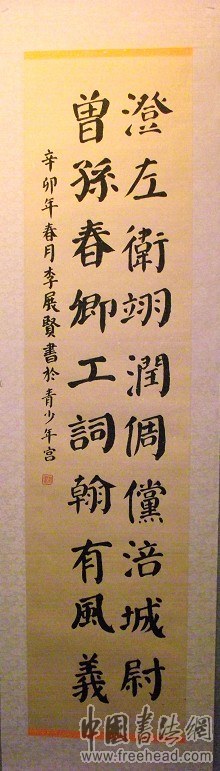 澄左衛翊潤倜儻涪城尉
曾孫春卿工詞翰有風義
辛卯年春月李展賢書於青少年宮
中国书法网
www.freehead.com